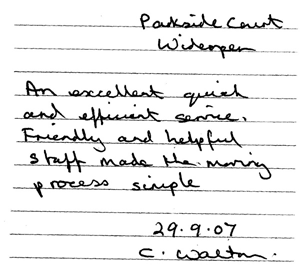 Parkside Court
Wideopen
An excellent quick
and efficient service.
Friendly and helpful
staff made the moving
process simple
29.9.07
C. Walton.